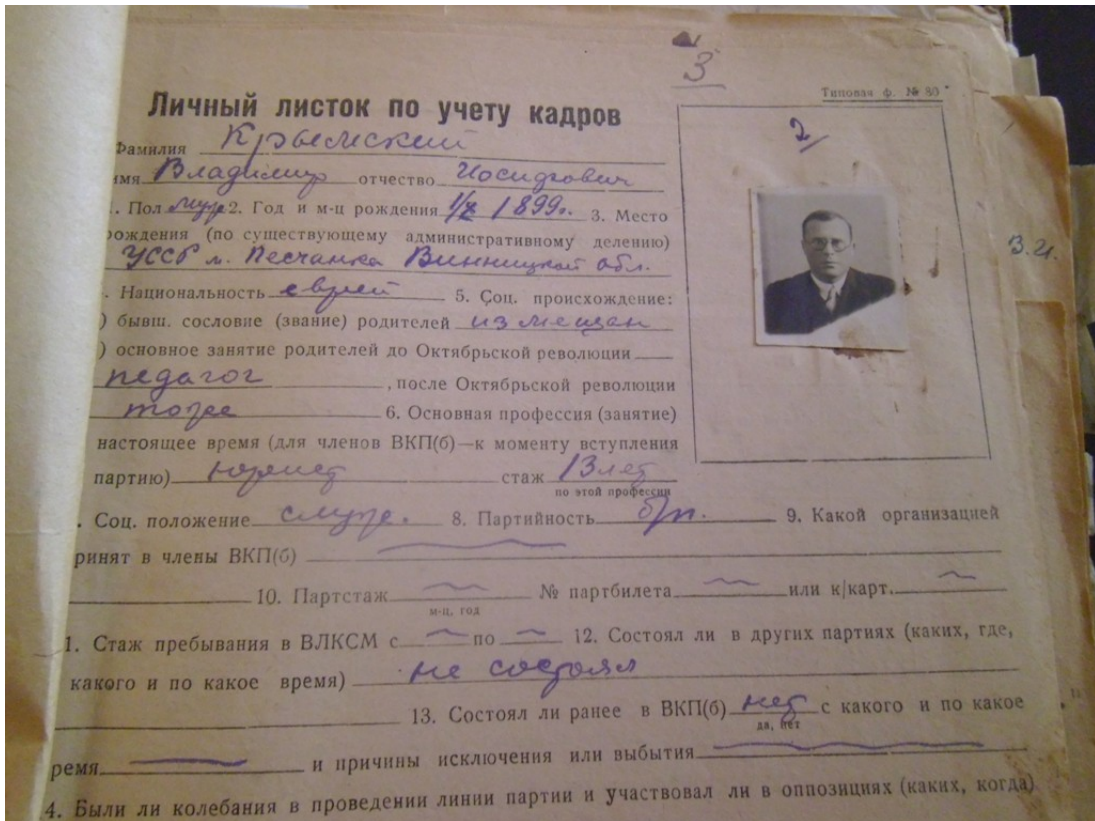 3
Типовая ф. № 80
Личный листок по учету кадров
2
Фамилия Крымский
имя Владимир отчество Иосифович
1. Пол муж 2. Год и м-ц рождения 1899г. 3. Место
рождения (по существующему административному делению)
УССР м. Песчанка Винницкой обл.
З.И.
. Национальность еврей 5. Соц. происхождение:
) бывш. сословие (звание) родителей из мещан
) основное занятие родителей до Октябрьской революции
педагог , после Октябрьской революции
тоже 6. Основная профессия (занятие)
настоящее время (для членов ВКП(б)—к моменту вступления
партию) юрист стаж 13 лет
по этой профессии
. Соц. положение служ. 8. Партийность б/п. 9. Какой организацией
ринят в члены ВКП(б)
10. Партстаж № партбилета или к/карт.
м-ц, год
1. Стаж пребывания в ВЛКСМ с по 12. Состоял ли в других партиях (каких, где,
какого и по какое время) не состоял
13. Состоял ли ранее в ВКП(б) нет с какого и по какое
да, нет
ремя и причины исключения или выбытия
4. Были ли колебания в проведении линии партии и участвовал ли в оппозициях (каких, когда)